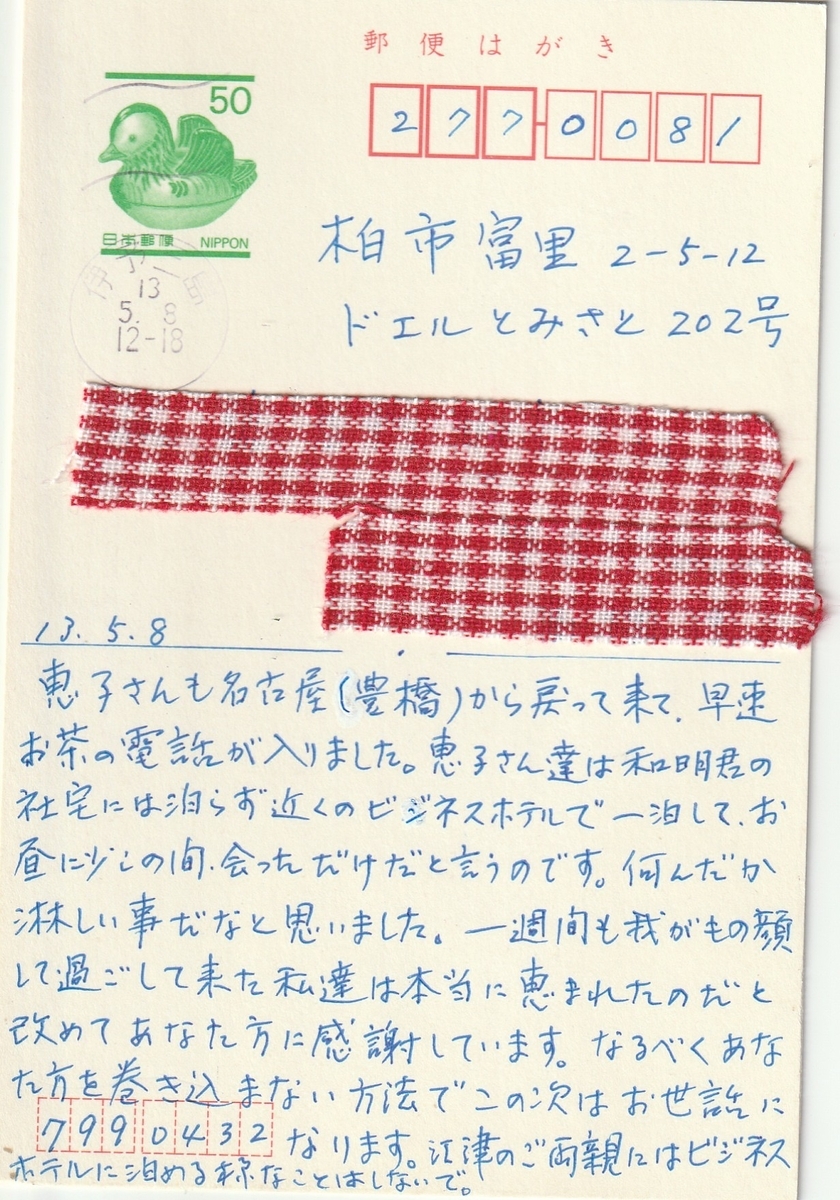 郵便はがき
50
日本郵便 NIPPON
277-0081
13
5. 8
12-18
柏市富里 2-5-12
ドエルとみさと 202号
13.5.8
恵子さんも名古屋(豊橋)から戻って来て、早速
お茶の電話が入りました。恵子さん達は和明君の
社宅には泊らず近くのビジネスホテルで一泊して、お
昼に少しの間、会っただけだと言うのです。何んだか
淋しい事だなと思いました。一週間も我がもの顔
して過ごして来た私達は本当に恵まれたのだと
改めてあなた方に感謝しています。なるべくあな
た方を巻き込まない方法でこの次はお世話に
なります。江津のご両親にはビジネス
ホテルに泊める様なことはしないで。
7990432